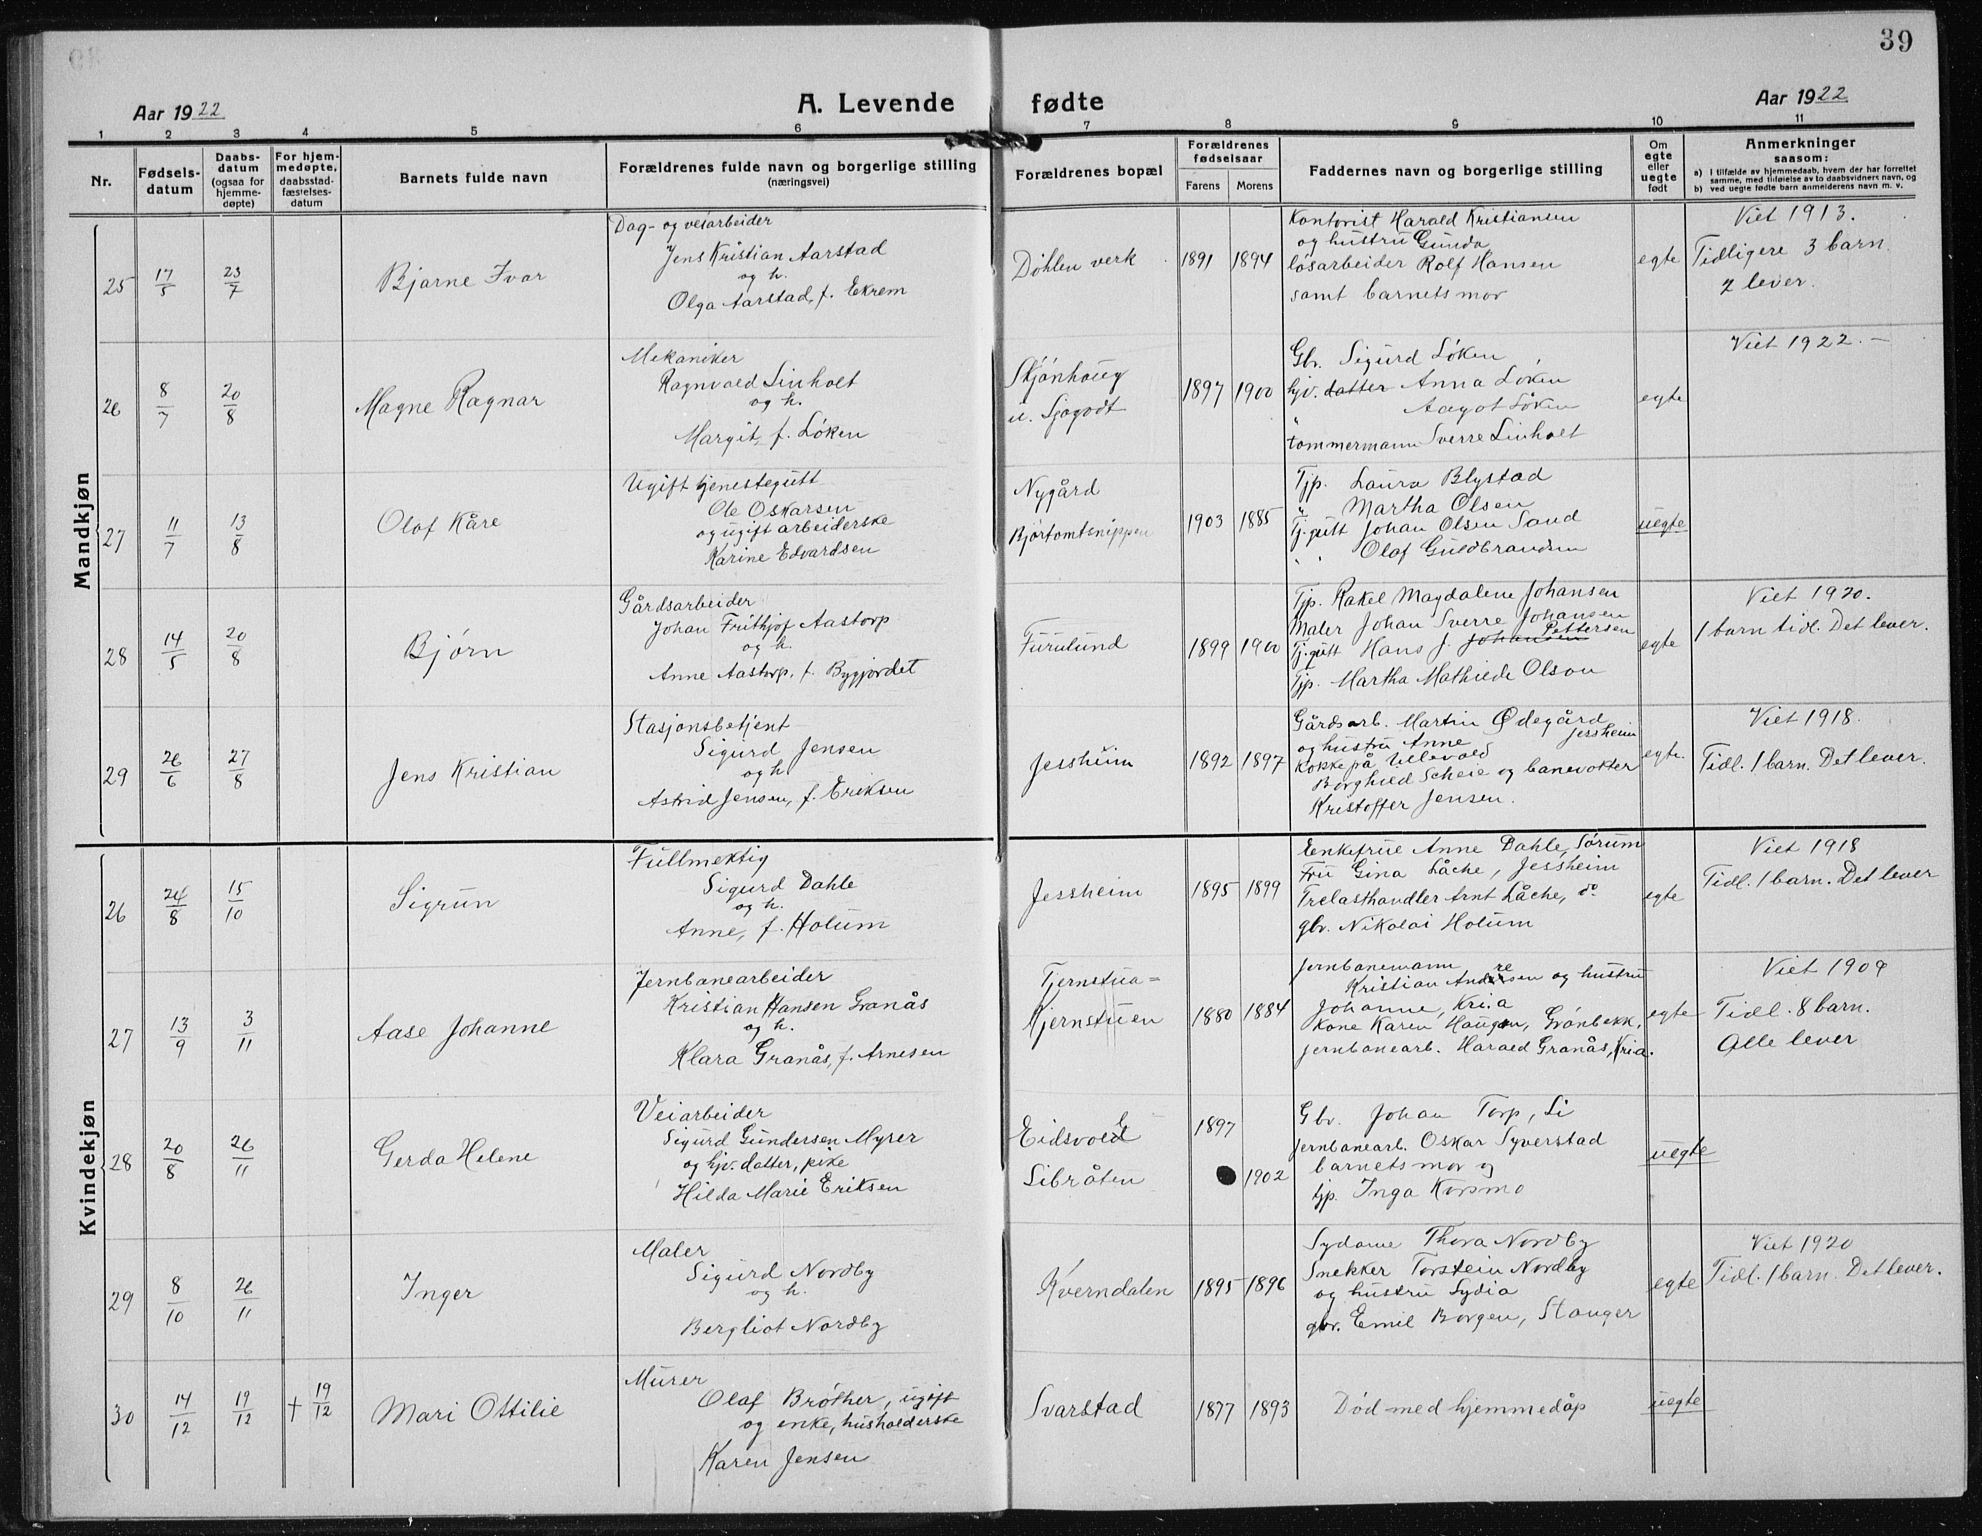 39
Aar 1922
A. Levende fødte
Aar 1922
1 2 3 4 5 6 7 8 9 10 11
Nr.
Fødsels-
datum
Daabs-
datum
(ogsaa for
hjemme-
døpte)
For hjem-
medøpte,
daabsstad-
fæstelses-
datum
Barnets fulde navn
Forældrenes fulde navn og borgerlige stilling
(næringsvei)
Forældrenes bopæl
Forældrenes
fødselsaar
Farens Morens
Faddernes navn og borgerlige stilling
Om
egte
eller
uegte
født
Anmerkninger
saasom:
a) I tilfælde av hjemmedaab, hvem der har forrettet
samme, med tilføielse av to daabsvidners navn, og
b) ved uegte fødte barn anmelderens navn m. v.
Mandkjøn
25 17/5 23/7
Bjarne Ivar
Dag- og veiarbeider
Jens Kristian Aarstad
og h.
Olga Aarstad, f. Ekrem
Døhlen verk
1891 1894
Kontorist Harald Kristiansen
og hustru Gunda
løsarbeider Rolf Hansen
samt barnets mor
egte
Viet 1913.
Tidligere 3 barn.
2 lever.
26 8/7 20/8
Magne Ragnar
Mekaniker
Ragnvald Linholt
og h.
Margit, f. Løken
Skjønhaug
u. Sjøgodt
1897 1900
Gbr. Sigurd Løken
hjv. datter Anna Løken
" Aagot Løken
tømmermann Sverre Linholt
egte
Viet 1922. —
27 11/7 13/8
Olaf Kåre
Ugift tjenestegutt
Ole Oskarsen
og ugift arbeiderske
Karine Edvardsen
Nygård
Bjørtomtsnippen
1903 1885
Tjp. Laura Blystad
" Martha Olsen
Tj.gutt Johan Olsen Sand
" Olaf Guldbrandsen
uegte
28 14/5 20/8
Bjørn
Gårdsarbeider
Johan Frithjof Aastorp
og h.
Anne Aastorp, f. Bygjordet
Furulund
1899 1900
Tjp. Rakel Magdalene Johansen
Maler Johan Sverre Johansen
Tj.gutt Hans J. Johansen Pettersen
Tjp. Martha Mathilde Olson
egte
Viet 1920.
1 barn tidl. Det lever.
29 26/6 27/8
Jens Kristian
Stasjonsbetjent
Sigurd Jensen
og h.
Astrid Jensen, f. Eriksen
Jessheim
1892 1897
Gårdsarb. Martin Ødegård
og hustru Anne Jessheim
Kokke på Ullevold
Borghild Scheie og banevokter
Kristoffer Jensen.
egte.
Viet 1918.
Tidl. 1 barn. Det lever.
Kvindekjøn
26 24/8 15/10
Sigrun
Fullmektig
Sigurd Dahle
og h.
Anne, f. Holum
Jessheim
1895 1899
Enkefrue Anne Dahle, Sørum
Fru Gina Låche, Jessheim
Trelasthandler Arnt Låche, do
gbr. Nikolai Holum
egte
Viet 1918
Tidl. 1 barn. Det lever
27 13/9 3/11
Aase Johanne
Jernbanearbeider
Kristian Hansen Granås
og h.
Klara Granås, f. Arnesen
Tjernstua =
Kjernstuen
1880 1884
Jernbanemann
Kristian Andresen og hustru
Johanne, Kria
Kone Karen Haugen, Grønbekk,
jernbanearb. Harald Granås, Kria.
egte
Viet 1904
Tidl. 8 barn.
Alle lever
28 20/8 26/11
Gerda Helene
Veiarbeider
Sigurd Gundersen Myrer
og hjv. datter, pike
Hilda Marie Eriksen
Eidsvold
Libråten
1897
1902
Gbr. Johan Torp, Li
jernbanearb. Oskar Syverstad
barnets mor og
tjp. Inga Korsmo
uegte
29 8/10 26/11
Inger
Maler
Sigurd Nordby
og h.
Bergliot Nordby
Kverndalen
1895 1896
Sydame Thora Nordby
Snekker Torstein Nordby
og hustru Sydia
gbr. Emil Borgen, Stanger
egte
Viet 1920
Tidl. 1 barn. Det lever.
30 14/12 19/12 † 19/12
Mari Ottilie
Murer
Olaf Brøther, ugift
og enke, husholderske
Karen Jensen
Svarstad
1877 1893
Død med hjemmedåp
uegte